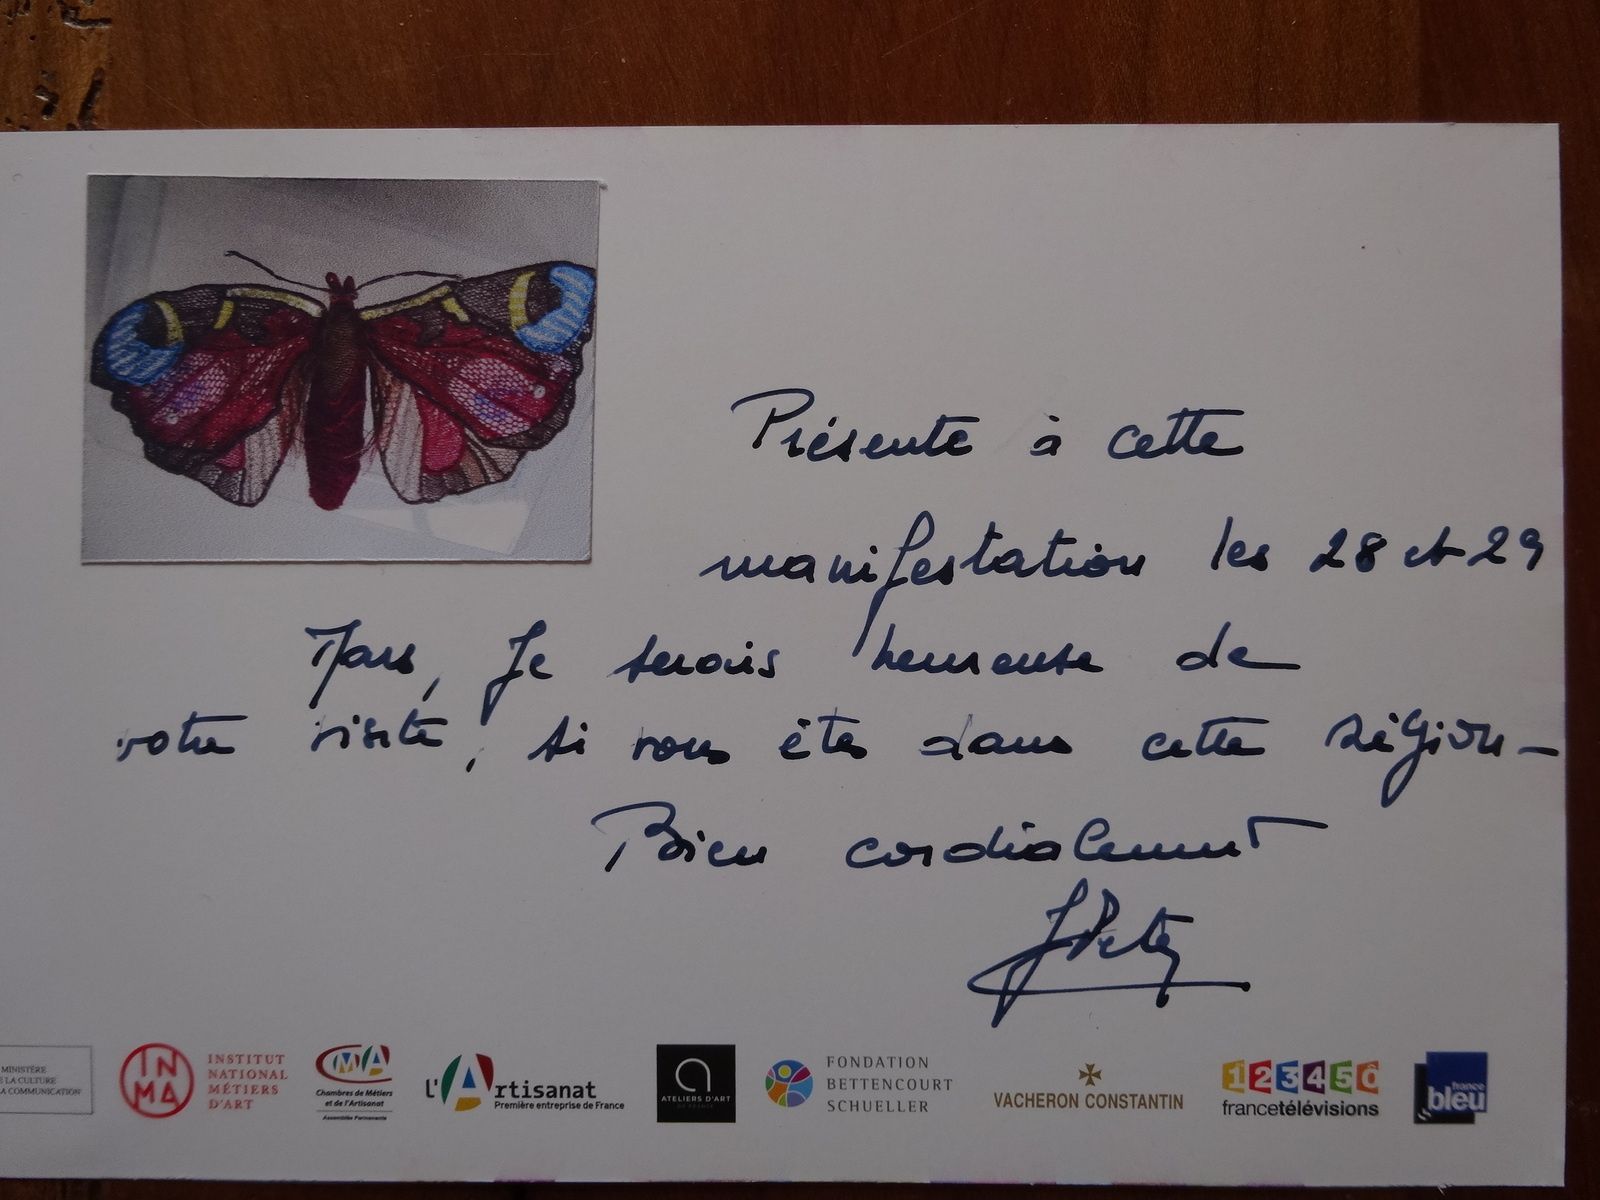 Présente à cette
manifestation les 28 et 29
Mars, Je serais heureuse de
votre visite, si vous êtes dans cette région -
Bien cordialement
MINISTÈRE
E LA CULTURE
LA COMMUNICATION
IN
MA
INSTITUT
NATIONAL
MÉTIERS
D'ART
CMA
Chambres de Métiers
et de l'Artisanat
Assemblée Permanente
l'Artisanat
Première entreprise de France
ATELIERS D'ART
DE FRANCE
FONDATION
BETTENCOURT
SCHUELLER
VACHERON CONSTANTIN
1 2 3 4 5 ô
francetélévisions
france
bleu